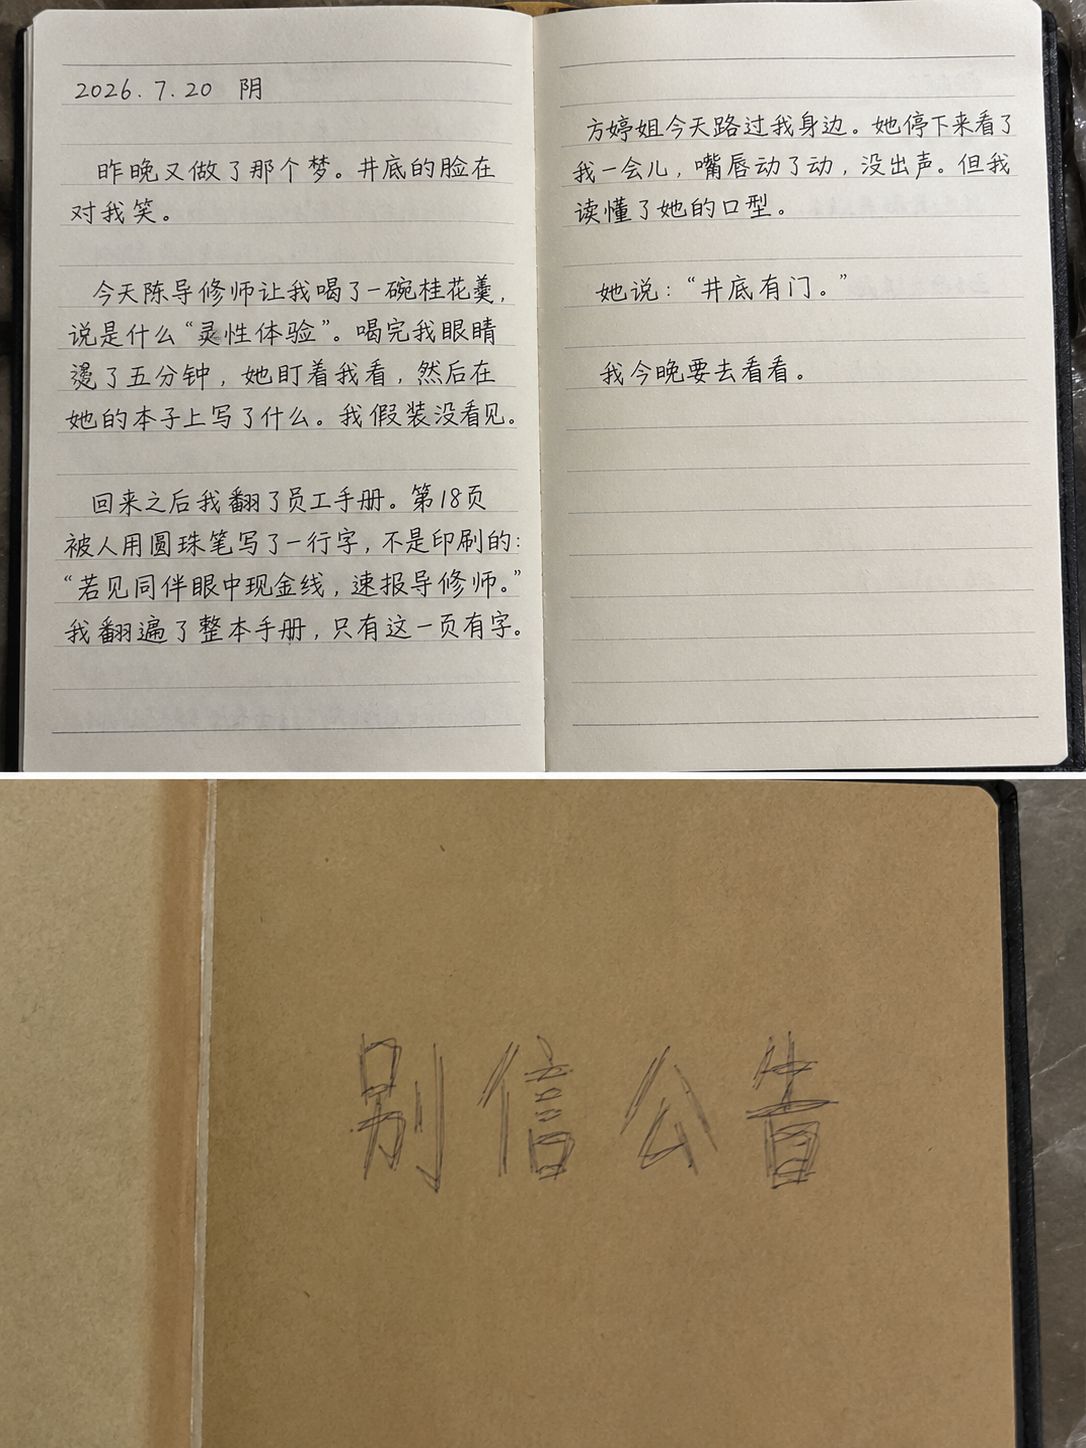 2026.7.20 阴
昨晚又做了那个梦。井底的脸在
对我笑。
今天陈导修师让我喝了一碗桂花羹，
说是什么“灵性体验”。喝完我眼睛
烫了五分钟，她盯着我看，然后在
她的本子上写了什么。我假装没看见。
回来之后我翻了员工手册。第18页
被人用圆珠笔写了一行字，不是印刷的：
“若见同伴眼中现金线，速报导修师。”
我翻遍了整本手册，只有这一页有字。
方婷姐今天路过我身边。她停下来看了
我一会儿，嘴唇动了动，没出声。但我
读懂了她的口型。
她说：“井底有门。”
我今晚要去看看。
别信公告